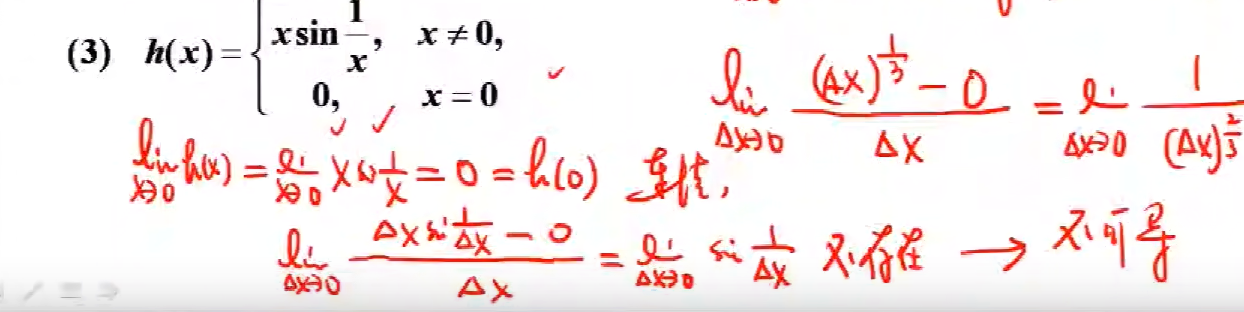 (3) h(x) = { x sin 1/x, x ≠ 0,
0, x = 0
lim_{Δx→0} ((Δx)^{1/3} - 0)/Δx = li_{Δx→0} 1/(Δx)^{2/3}
lim_{x→0} h(x) = li_{x→0} x sin 1/x = 0 = h(0) 连续,
li_{Δx→0} (Δx si 1/Δx - 0)/Δx = li_{Δx→0} si 1/Δx 不存在 → 不可导